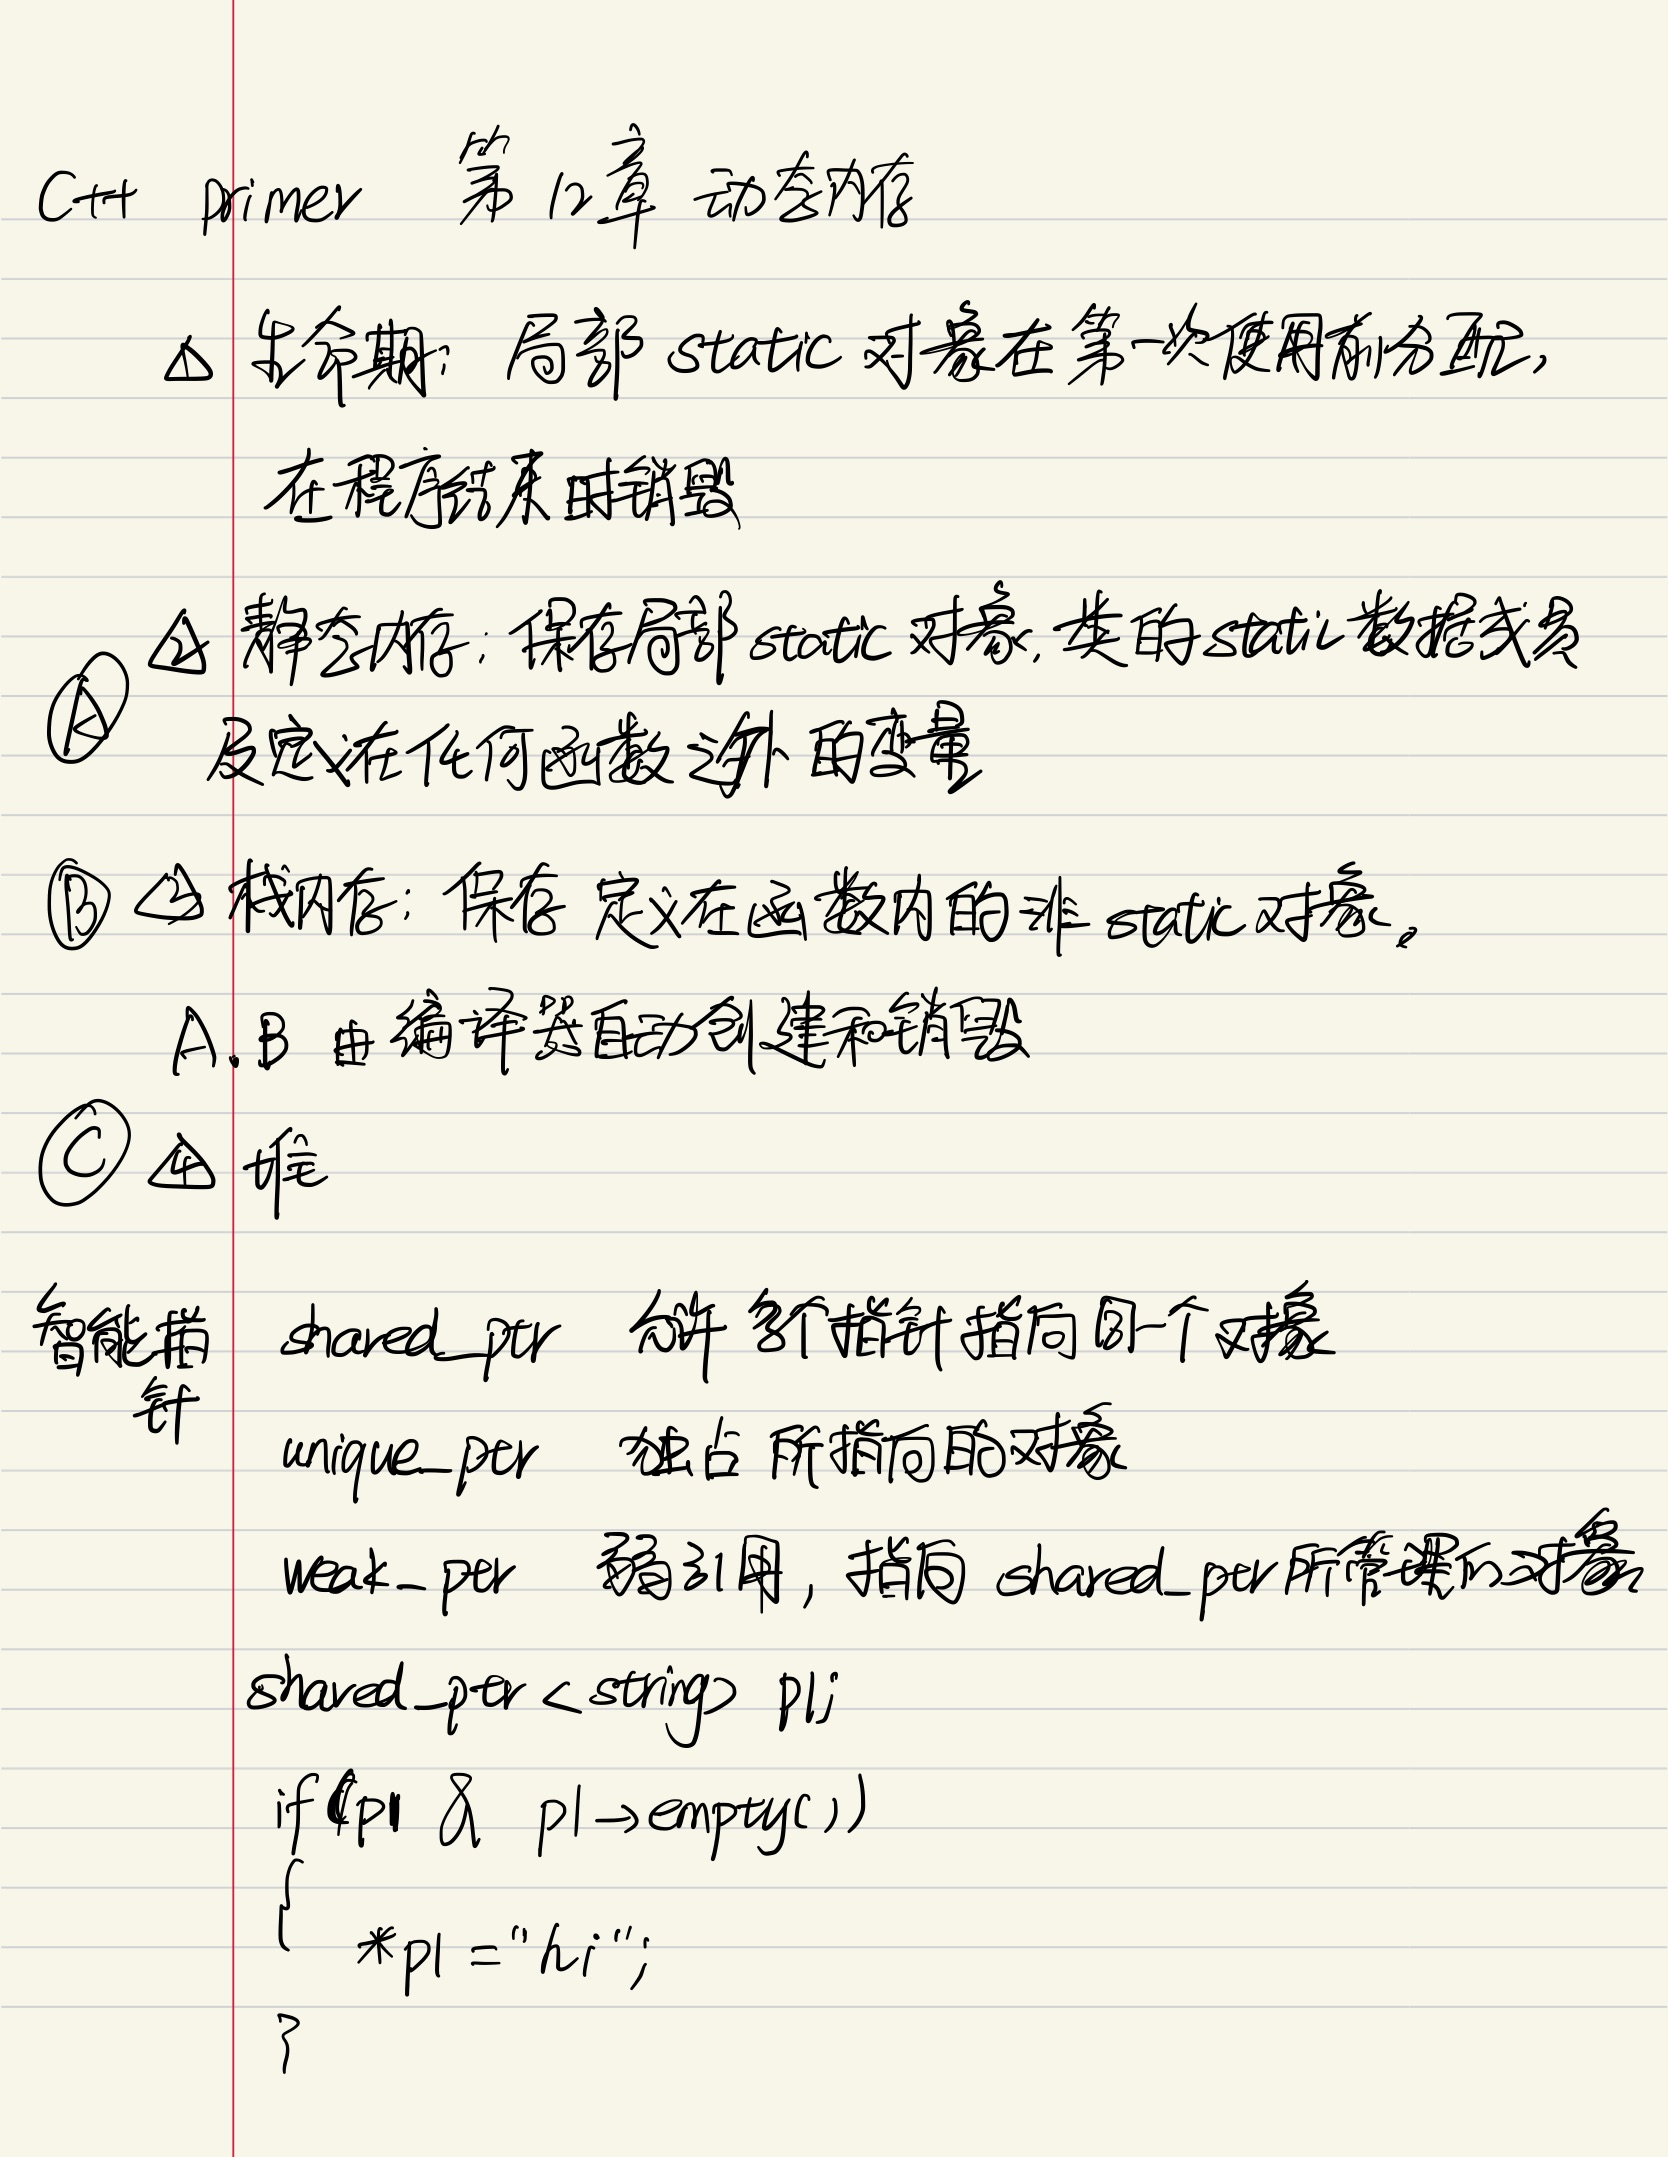 C++ primer 第12章 动态内存
△1 生命期: 局部 static 对象在第一次使用前分配,
在程序结束时销毁
△2 静态内存: 保存局部 static 对象,类的 static 数据成员
Ⓐ
及定义在任何函数之外的变量
Ⓑ △3 栈内存: 保存定义在函数内的非 static 对象。
A.B 由编译器自动创建和销毁
Ⓒ △4 堆
智能指 shared_ptr 允许多个指针指向同一个对象
针
unique_ptr 独占所指向的对象
weak_ptr 弱引用, 指向 shared_ptr 所管理的对象
shared_ptr<string> p1;
if (p1 & p1→empty())
{
*p1 = "hi";
}